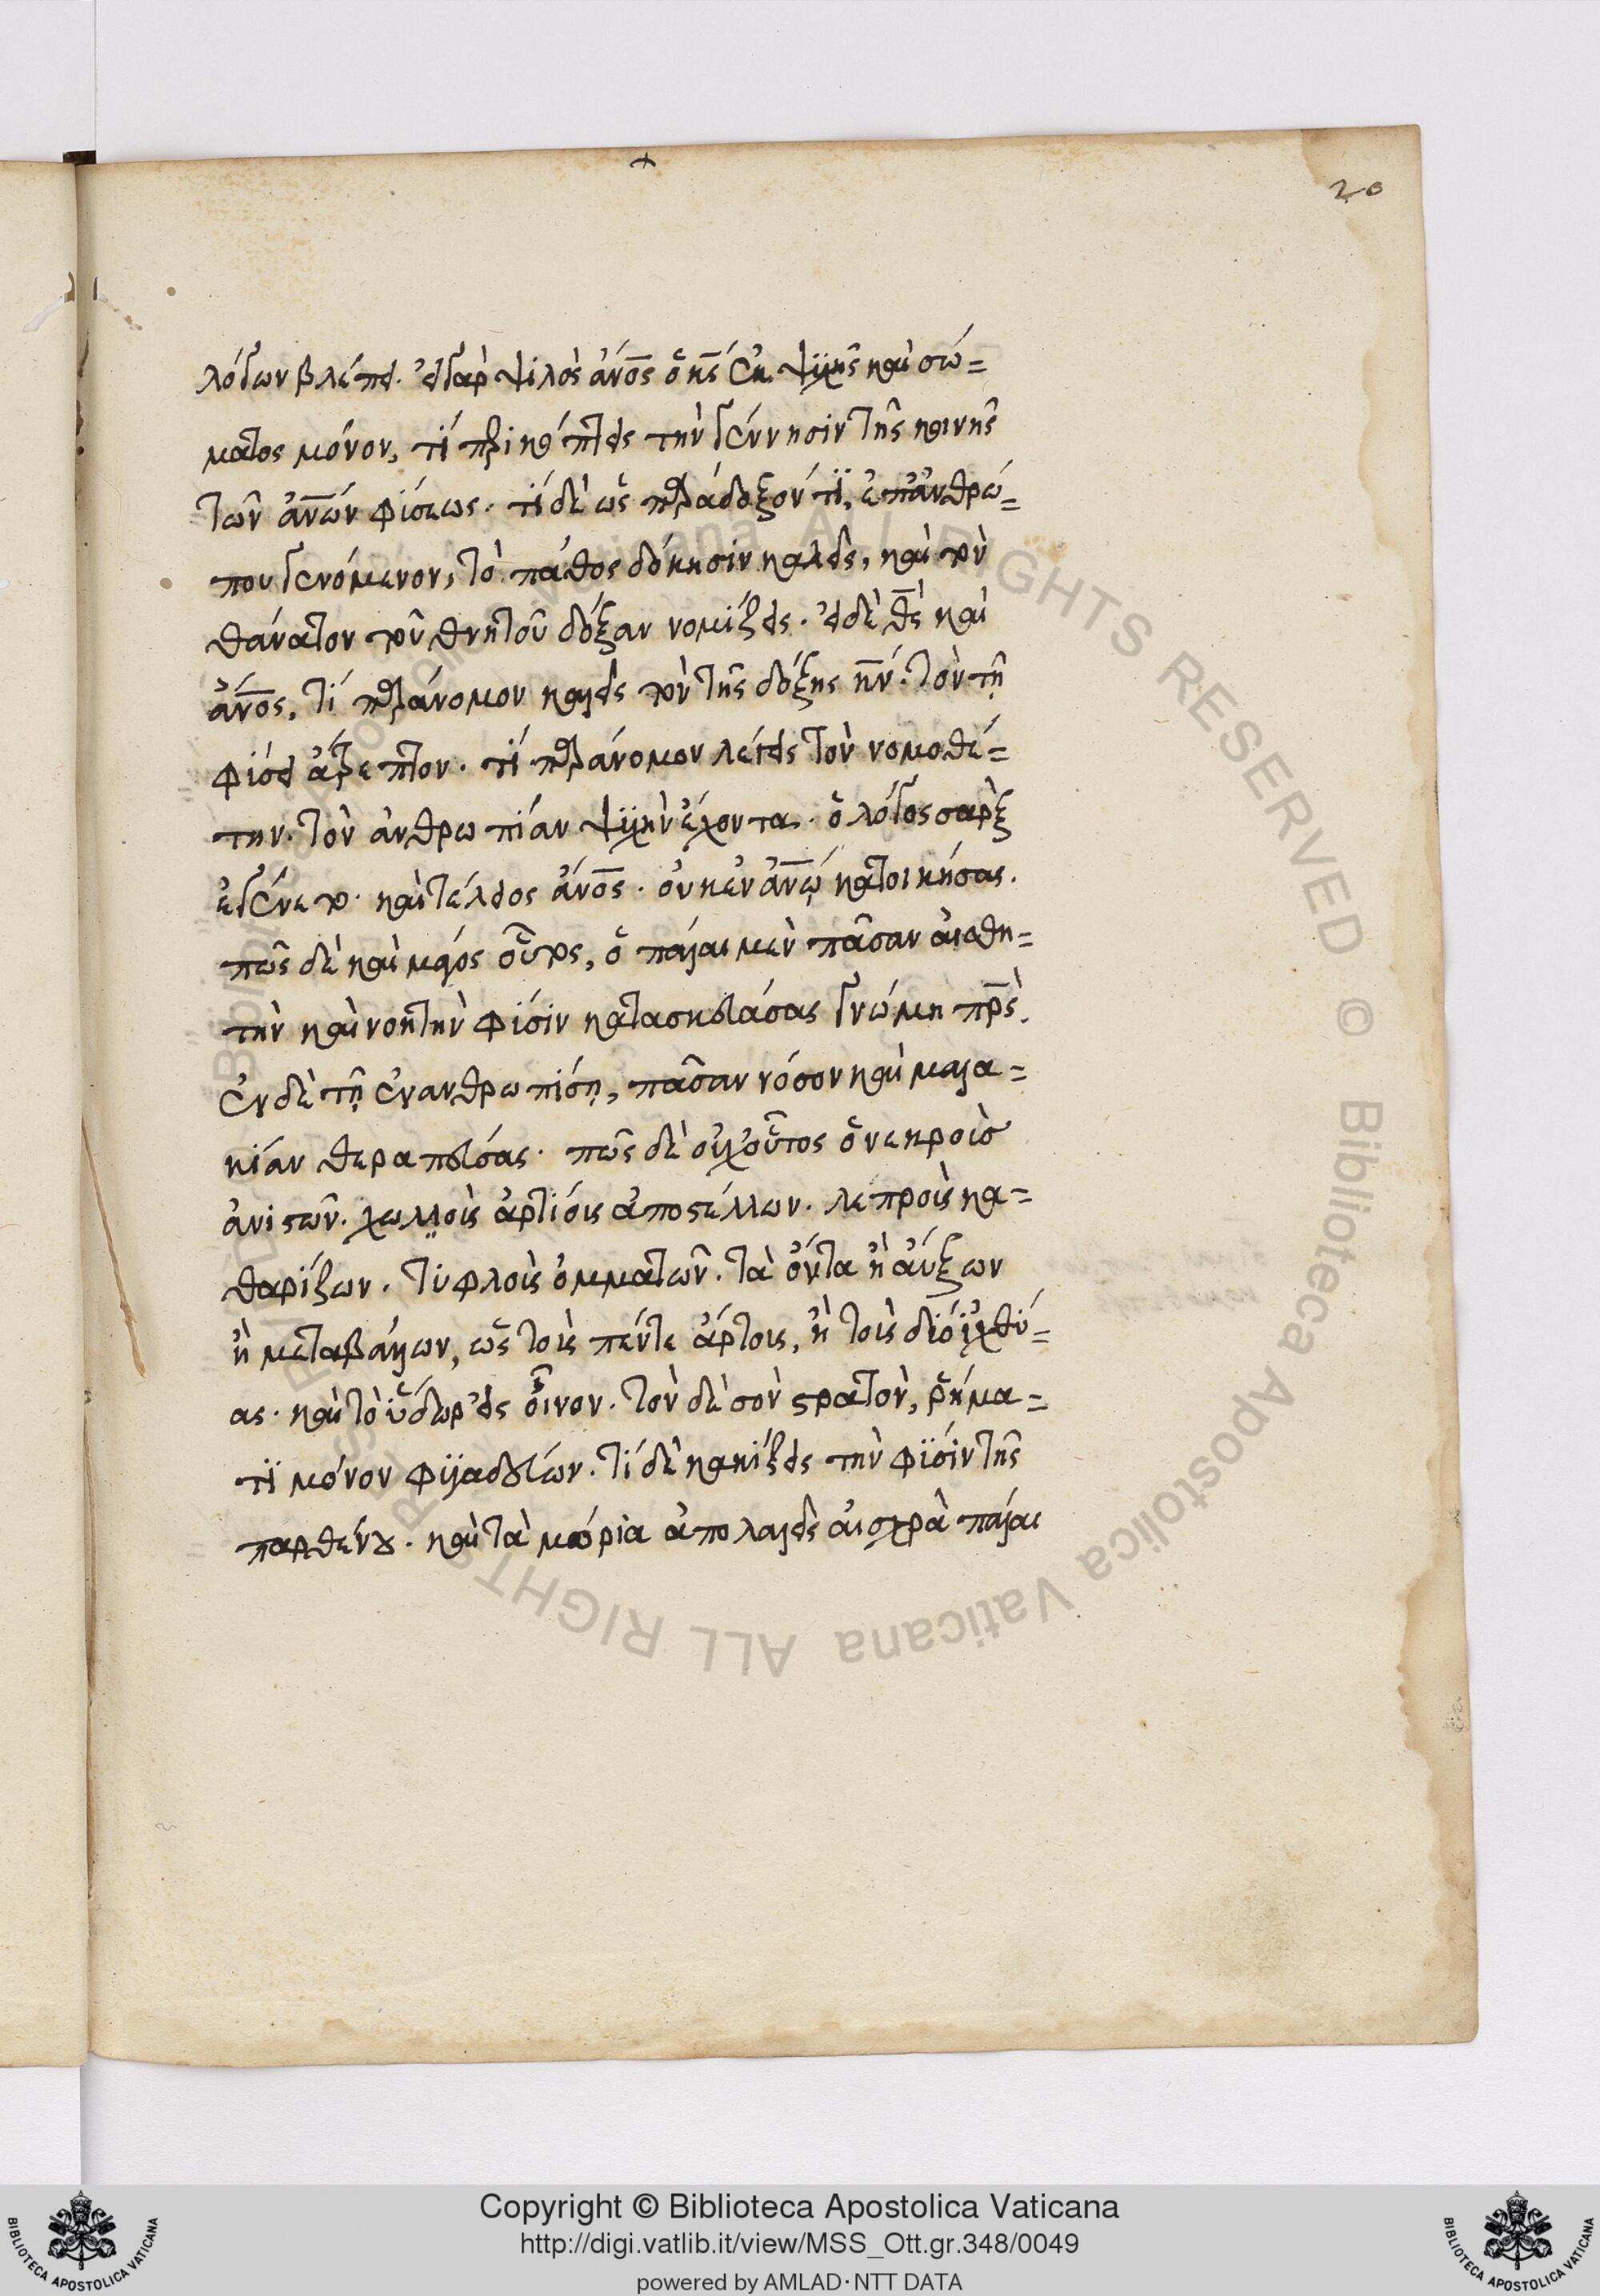 20
λόγων βλέπει. εἰ γὰρ ψιλὸς ἄνος ὁ χς ἐκ ψυχῆς καὶ σώ=
ματος μόνον, τί περικόπτεις τὴν γέννησιν τῆς κοινῆς
τῶν ἀνων φύσεως. τί δὲ ὡς παράδοξόν τι, ἐπ' ἀνθρώ=
που γενόμενον, τὸ πάθος δόκησιν καλεῖς, καὶ τὸν
θάνατον τοῦ θνητοῦ δόξαν νομίζεις. εἰ δὲ θς καὶ
ἄνος, τί παράνομον καλεῖς τὸν τῆς δόξης κν. τὸν τῇ
φύσει ἄτρεπτον. τί παράνομον λέγεις τὸν νομοθέ=
την. τὸν ἀνθρωπίαν ψυχὴν ἔχοντα. ὁ λόγος σὰρξ
ἐγένετο. καὶ τέλειος ἄνος. οὐκ ἐν ἀνω κατοικήσας.
πῶς δὲ καὶ μάγος οὗτος, ὁ πάλαι μὲν πᾶσαν αἰσθη=
τὴν καὶ νοητὴν φύσιν κατασκευάσας γνώμη πρς.
ἐν δὲ τῇ ἐνανθρωπίσῃ, πᾶσαν νόσον καὶ μαλα=
κίαν θεραπεύσας. πῶς δὲ οὐχ οὗτος ὁ νεκροὺσ
ἀνιστῶν. χωλλοὺς ἀρτίους ἀποστέλλων. λεπροὺς κα=
θαρίζων. τυφλοὺς ὀμματῶν. τὰ ὄντα ἢ αὔξων
ἢ μεταβάλλων, ὡς τοὺς πέντε ἄρτους, ἢ τοὺς δύο ἰχθύ=
ας. καὶ τὸ ὕδωρ εἰς οἶνον. τὸν δὲ σὸν στρατὸν, ῥήμα=
τι μόνον φυγαδεύων. τί δὲ κακίζεις τὴν φύσιν τῆς
παρθένου. καὶ τὰ μόρια ἀποκαλεῖς αἰσχρὰ πάλαι
Copyright © Biblioteca Apostolica Vaticana
http://digi.vatlib.it/view/MSS_Ott.gr.348/0049
powered by AMLAD·NTT DATA